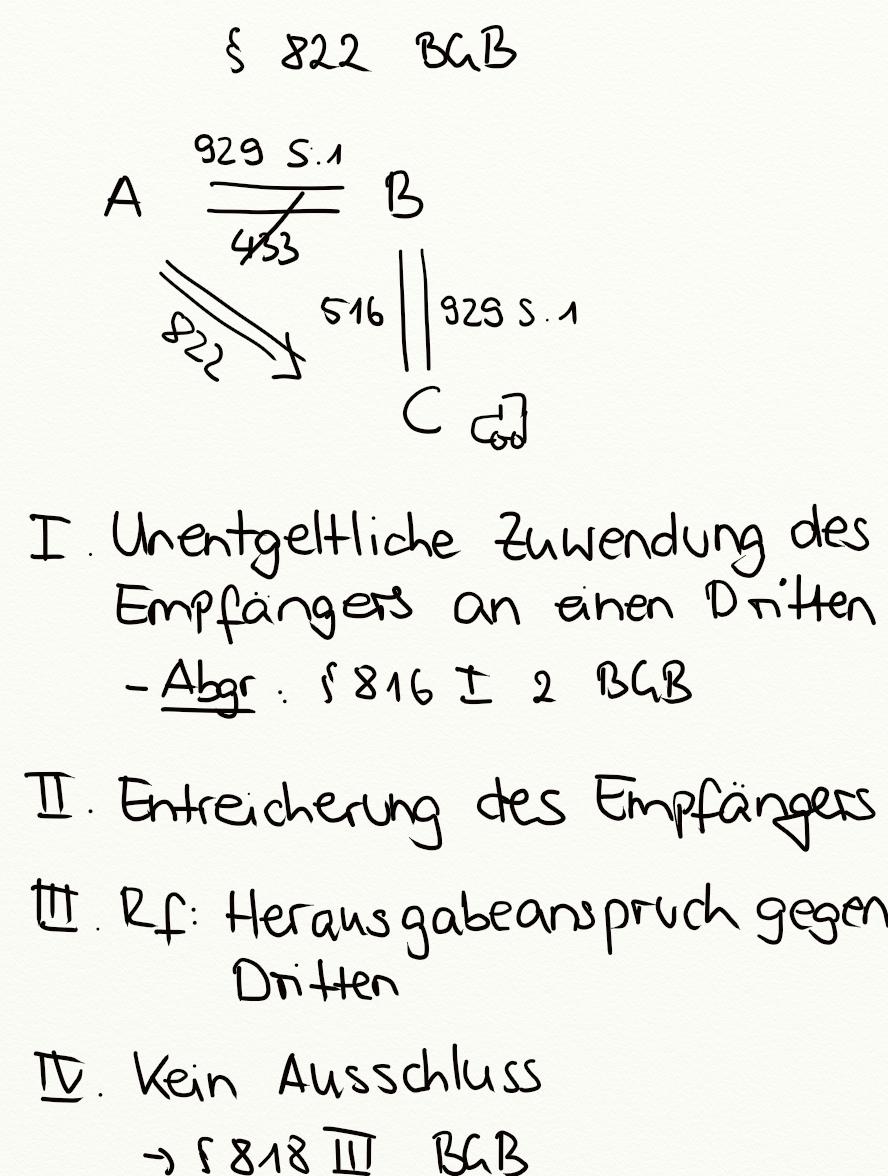 § 822 BGB
929 S.1
A B
433
822
516 929 S.1
C
I. Unentgeltliche Zuwendung des
Empfängers an einen Dritten
- Abgr.: § 816 I 2 BGB
II. Entreicherung des Empfängers
III. Rf: Herausgabeanspruch gegen
Dritten
IV. Kein Ausschluss
→ § 818 III BGB